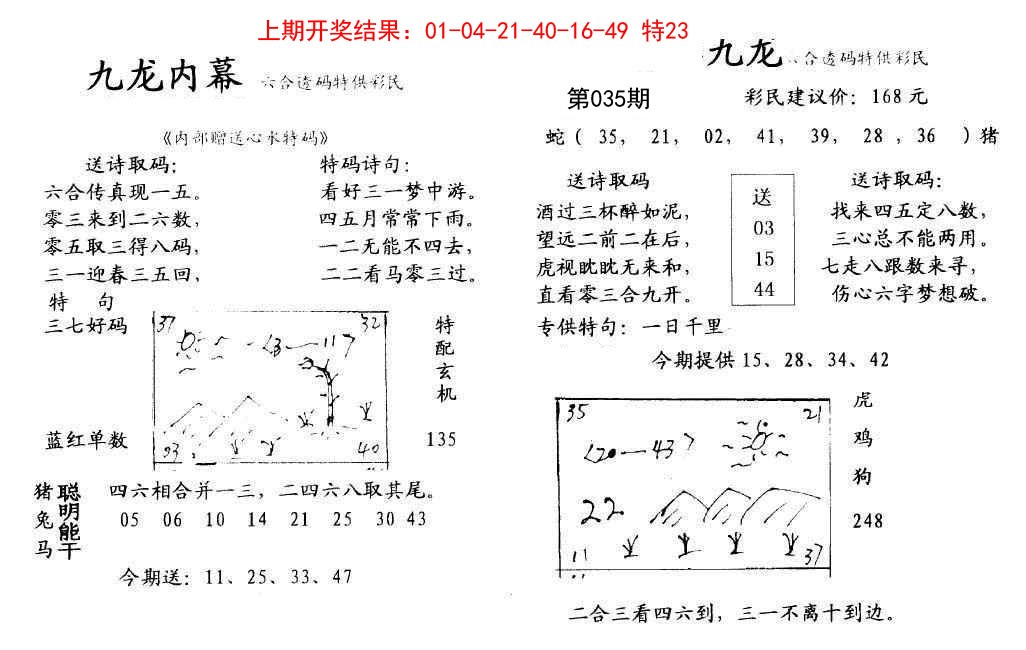 上期开奖结果：01-04-21-40-16-49 特23
九龙内幕 六合透码特供彩民
《内部赠送心水特码》
送诗取码：
六合传真现一五。
零三来到二六数，
零五取三得八码，
三一迎春三五回，
特码诗句：
看好三一梦中游。
四五月常常下雨。
一二无能不四去，
二二看马零三过。
特 句
三七好码
蓝红单数
37 32
23—11
03 40
特配玄机
135
猪兔马
聪明能干
四六相合并一三，二四六八取其尾。
05 06 10 14 21 25 30 43
今期送：11、25、33、47
九龙 六合透码特供彩民
第035期 彩民建议价：168元
蛇（ 35， 21， 02， 41， 39， 28 ，36 ）猪
送诗取码
酒过三杯醉如泥，
望远二前二在后，
虎视眈眈无来和，
直看零三合九开。
送
03
15
44
送诗取码：
找来四五定八数，
三心总不能两用。
七走八跟数来寻，
伤心六字梦想破。
专供特句：一日千里
今期提供15、28、34、42
35 21
20—43
22
11 37
虎
鸡
狗
248
二合三看四六到，三一不离十到边。